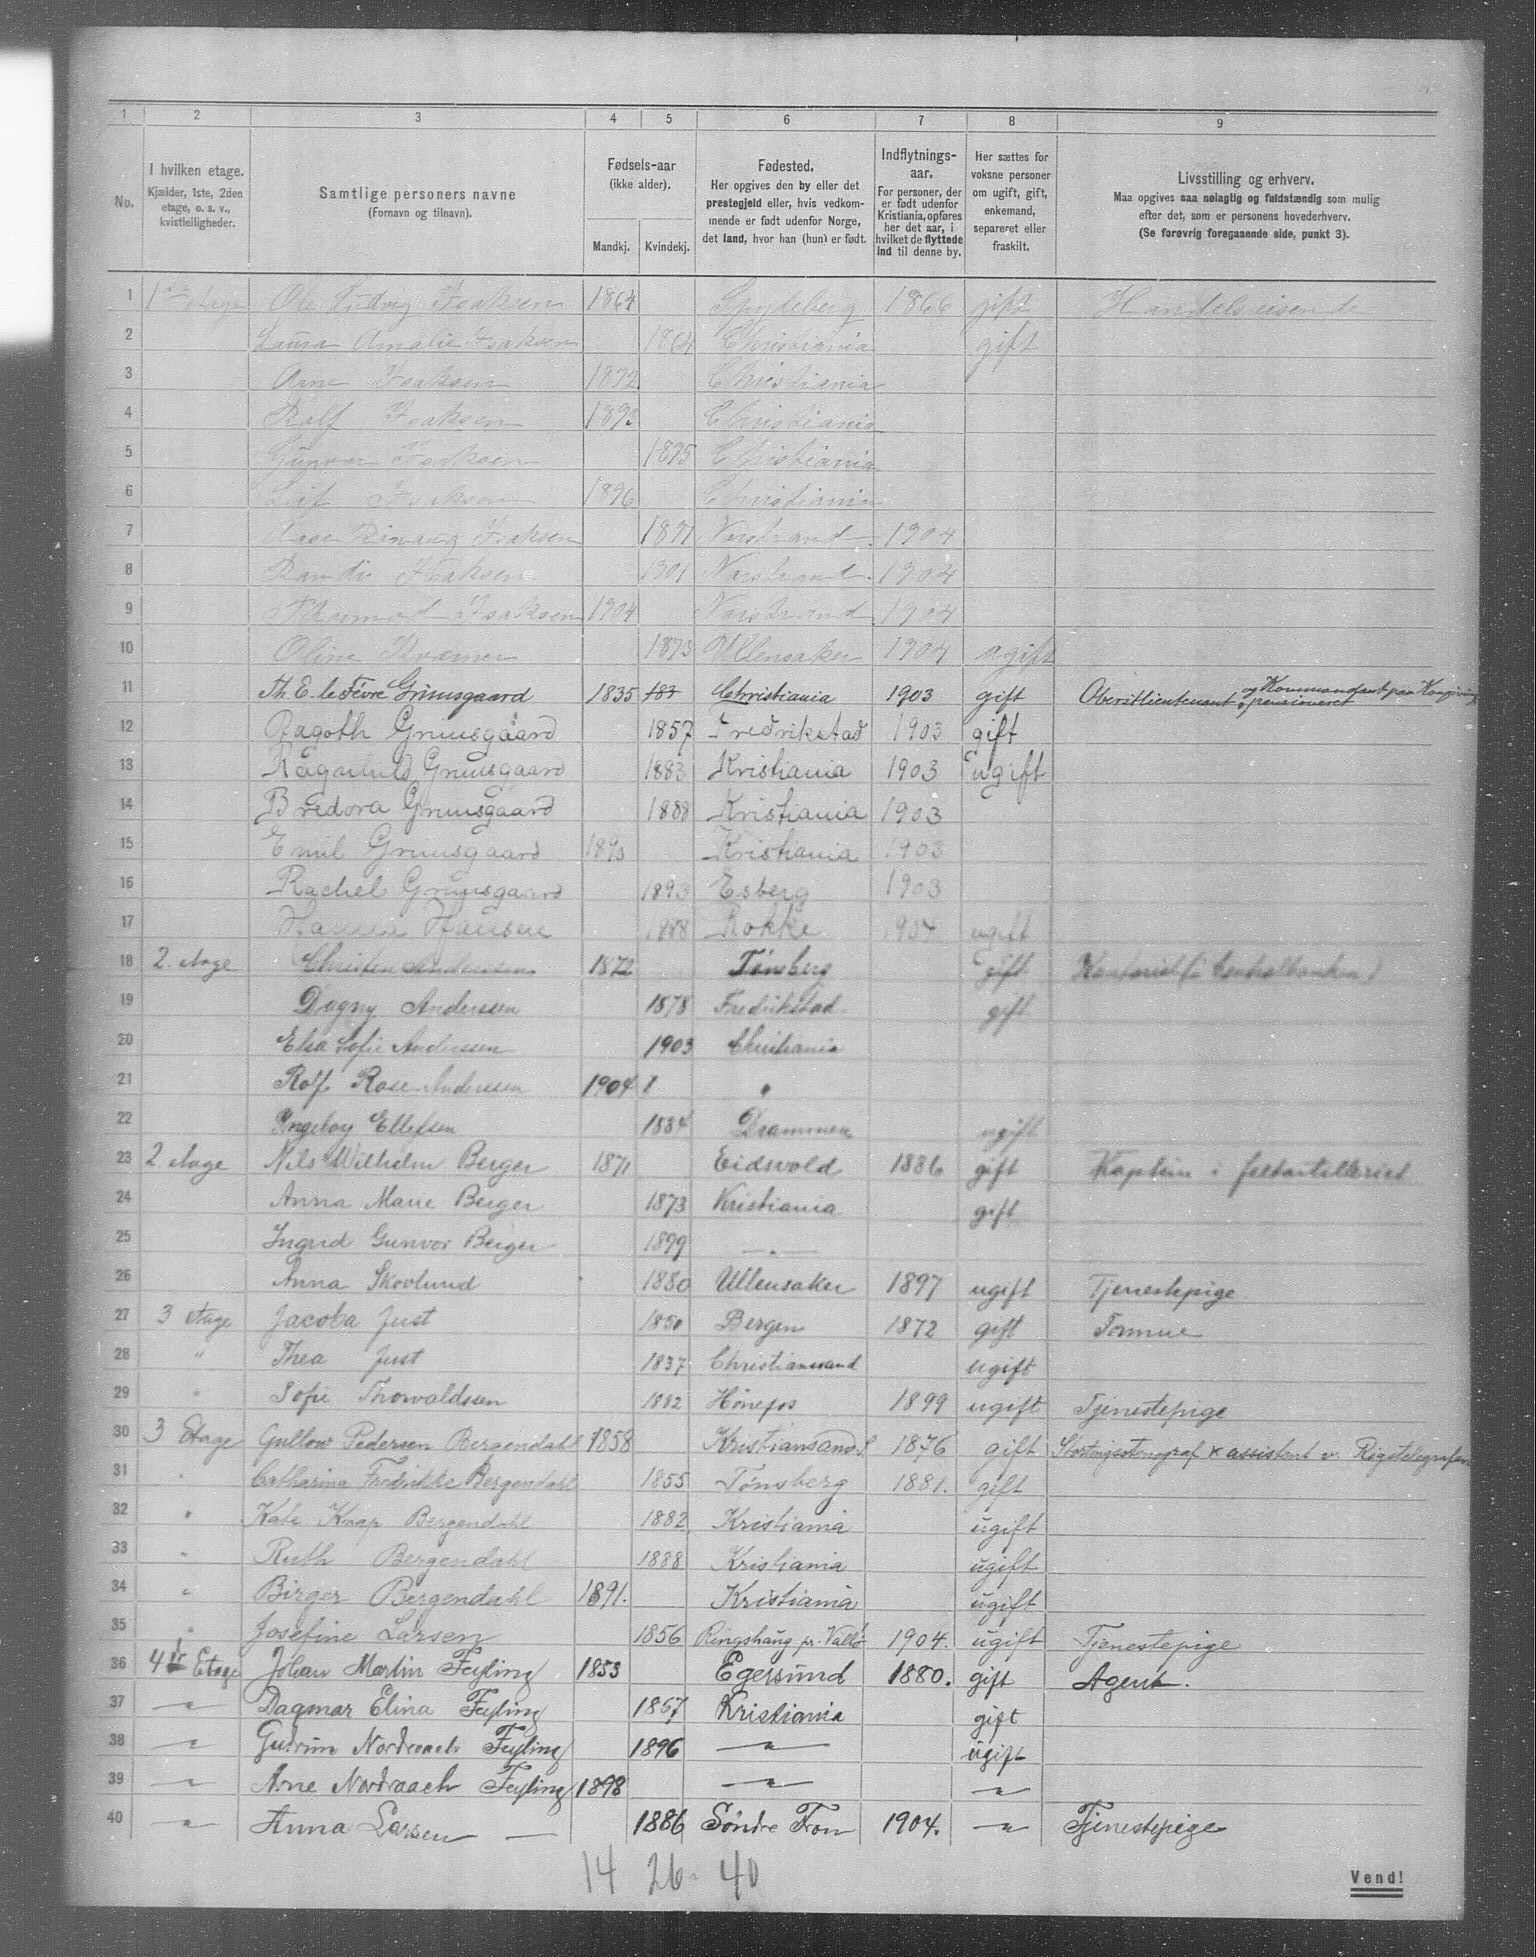 1 2 3 4 5 6 7 8 9
No.
I hvilken etage.
Kjælder, 1ste, 2den
etage, o. s. v.,
kvistleiligheder.
Samtlige personers navne
(Fornavn og tilnavn).
Fødsels-aar
(ikke alder).
Mandkj. Kvindekj.
Fødested.
Her opgives den by eller det
prestegjeld eller, hvis vedkom-
mende er født udenfor Norge,
det land, hvor han (hun) er født.
Indflytnings-
aar.
For personer, der
er født udenfor
Kristiania, opføres
her det aar, i
hvilket de flyttede
ind til denne by.
Her sættes for
voksne personer
om ugift, gift,
enkemand,
separeret eller
fraskilt.
Livsstilling og erhverv.
Maa opgives saa nøiagtig og fuldstændig som mulig
efter det, som er personens hovederhverv.
(Se forøvrig foregaaende side, punkt 3).
1 1ste etage Ole Ludvig Isaksen 1864 Spydeberg 1866 gift Handelsreisende
2 Laura Amalie Isaksen 1864 Christiania gift
3 Arne Isaksen 1892 Christiania
4 Ralf Isaksen 1893 Christiania
5 Gunvor Isaksen 1895 Christiania
6 Leif Isaksen 1896 Christiania
7 Aase Isaksen Norstrand 1904
8 Randi Isaksen 1901 Norstrand 1904
9 Thormod Isaksen 1904 Norstrand 1904
10 Oline 1873 Ullensaker 1904 ugift
11 Th. E. le Fèvre Grimsgaard 1835 183 Christiania 1903 gift Oberstlieutenant og Kommandant paa Kongsving. pensioneret
12 Ragoth Grimsgaard 1857 Fredrikstad 1903 gift
13 Ragnhild Grimsgaard 1883 Kristiania 1903 ugift
14 Bredora Grimsgaard 1888 Kristiania 1903
15 Emil Grimsgaard Kristiania 1903
16 Rachel Grimsgaard 1893 Esberg 1903
17 Hanna Hansen 1888 Rokke 1904 ugift
18 2. etage Christen Anderssen 1872 Tønsberg gift Kontorist (i Centralbanken)
19 Dagny Anderssen 1878 Fredrikstad gift
20 Elsa Sofie Anderssen 1903 Christiania
21 Rolf Rose Anderssen 1904 "
22 Ingeborg Ellefsen 1884 Drammen ugift
23 2. etage Nils Wilhelm Berger 1871 Eidsvold 1886 gift Kaptein i feltartilleriet
24 Anna Marie Berger 1873 Kristiania gift
25 Ingrid Gunvor Berger 1899 — " —
26 Anna Skovlund 1880 Ullensaker 1897 ugift Tjenestepige
27 3 etage Jacoba Just 1850 Bergen 1872 gift Formue
28 " Thea Just 1837 Christianssand ugift
29 " Sofie Thorvaldssen 1882 Hønefos 1899 ugift Tjenestepige
30 3 Etage Gullow Pedersen Bergendahl 1858 Kristianssand S. 1876 gift Stortingsstenograf & assistent v. Rigstelegrafen
31 " Catharina Fredrikke Bergendahl 1855 Tønsberg 1881. gift
32 " Kate Knap Bergendahl 1882 Kristiania ugift
33 " Ruth Bergendahl 1888 Kristiania ugift
34 " Birger Bergendahl 1891. Kristiania ugift
35 " Josefine Larsen 1856 Ringshaug pr. Vallø 1904. ugift Tjenestepige
36 4de Etage Johan Martin Feyling 1853 Egersund 1880. gift Agent.
37 — " — Dagmar Elina Feyling 1867 Kristiania gift
38 — " — Gudrun Nordraach Feyling 1896 — " — ugift
39 — " — Arne Nordraach Feyling 1898 — " — — " —
40 — " — Anna Larsen — 1886 Søndre Fron 1904. — " — Tjenestepige
14 26 - 40
Vend!